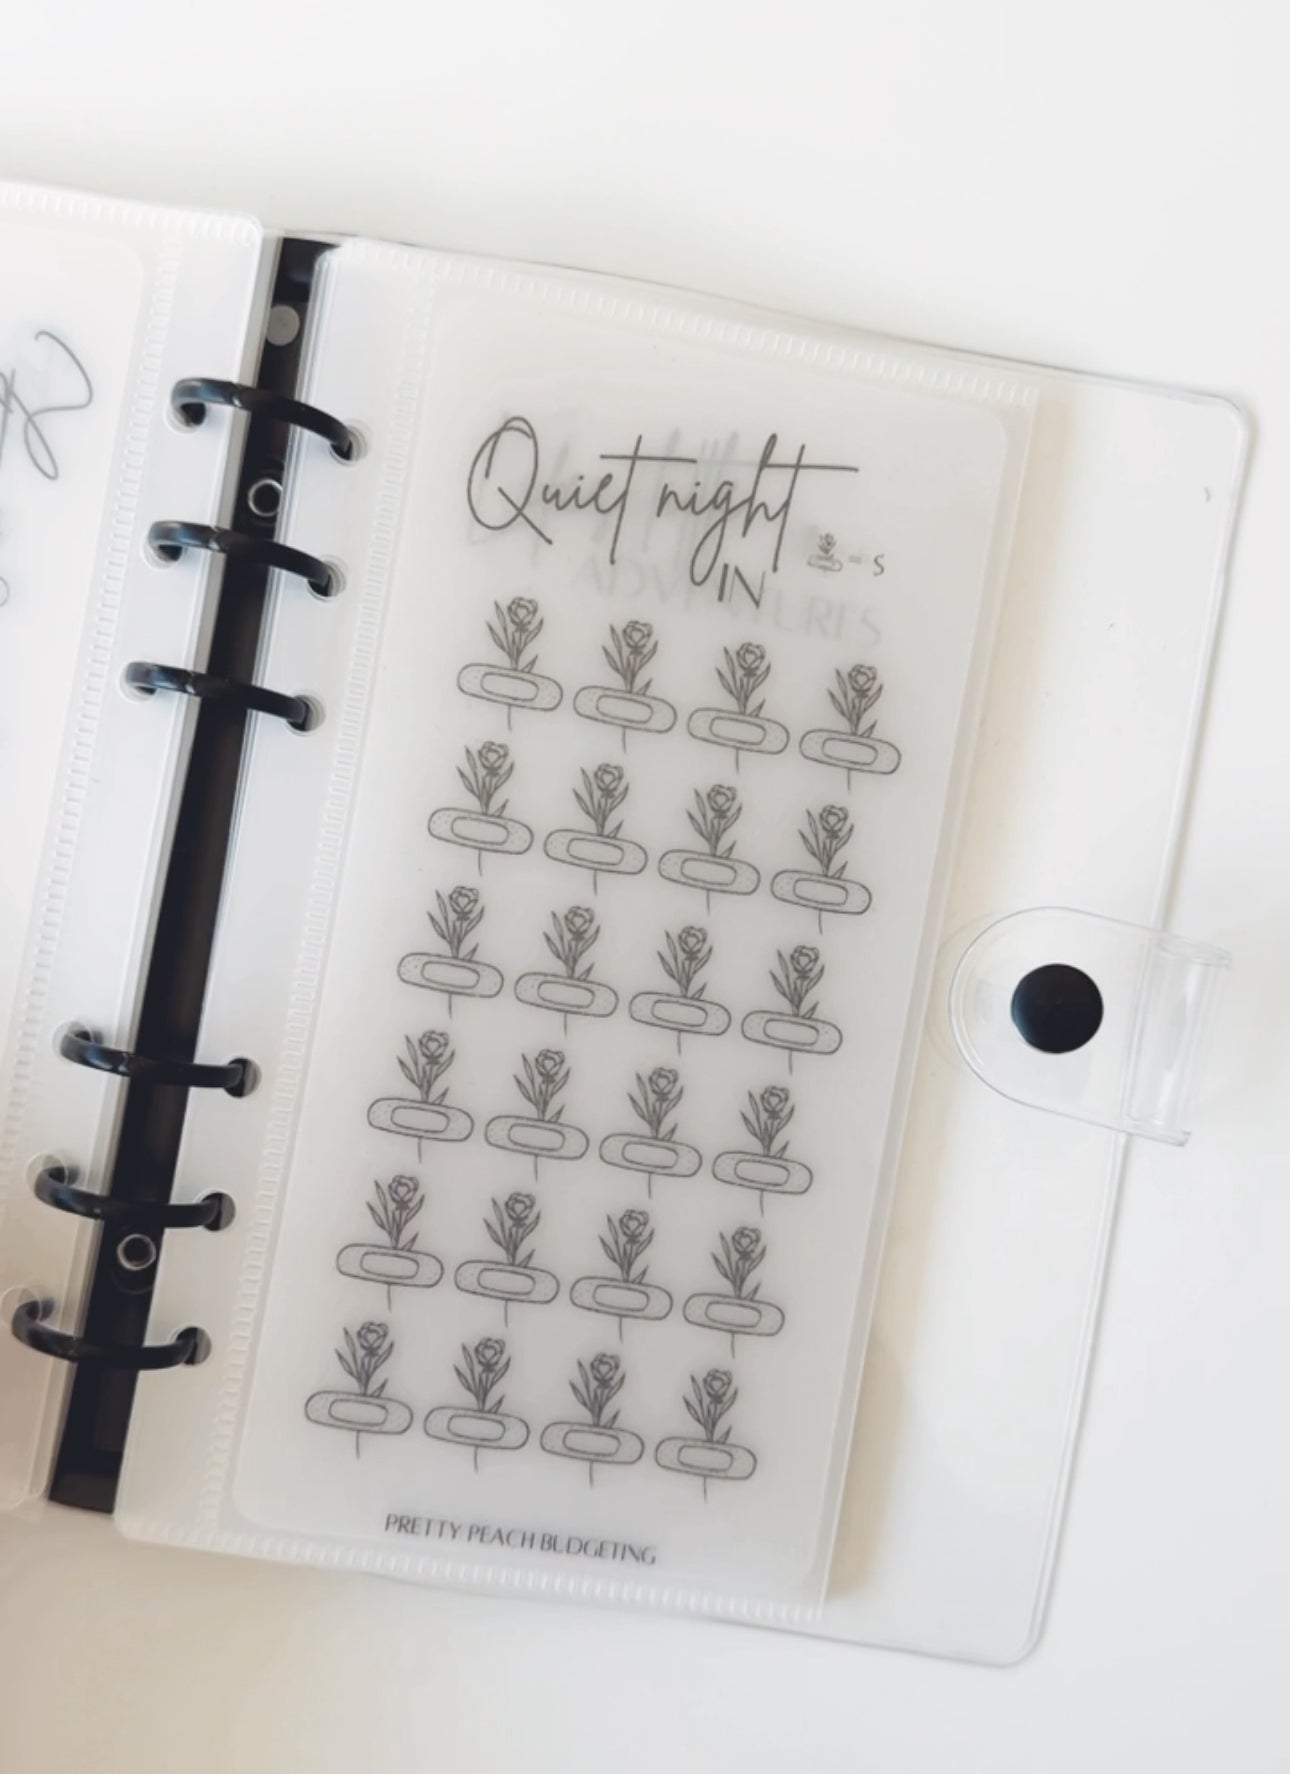 Quiet night
IN
= $
ADVENTURES
PRETTY PEACH BUDGETING